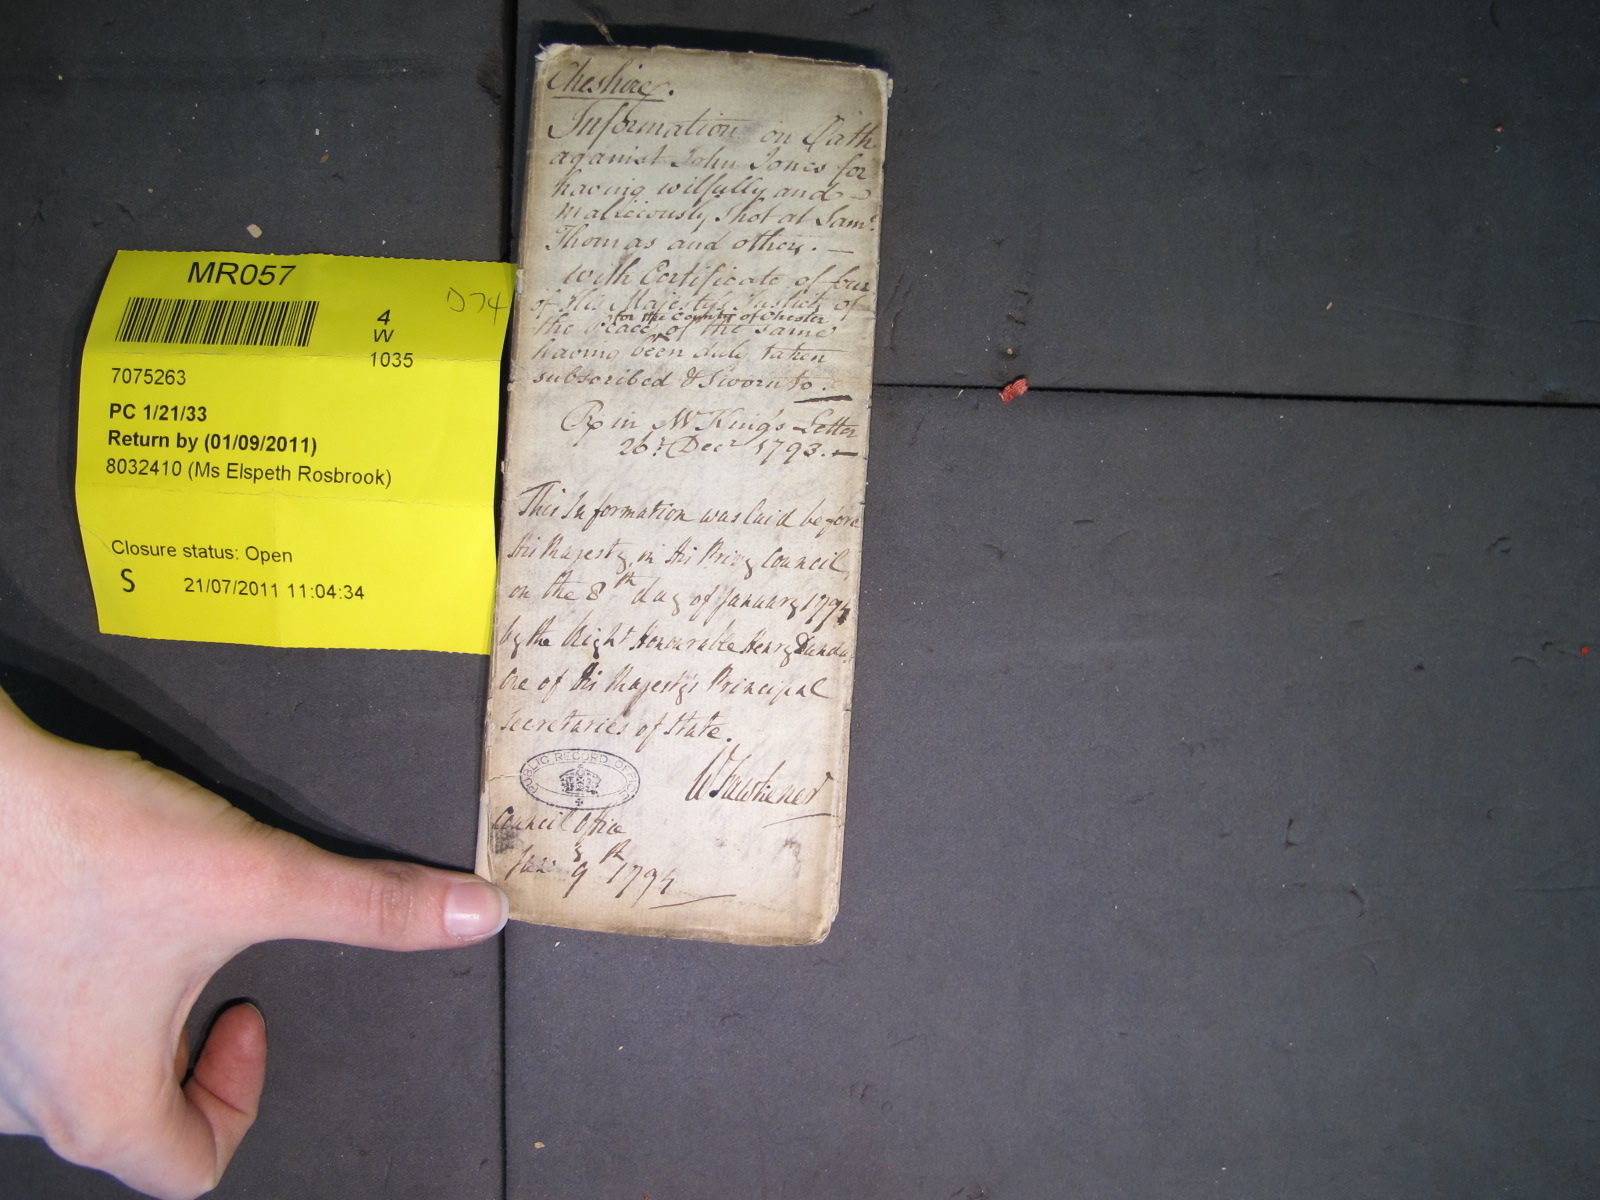 MR057
D74
4
W
1035
7075263
PC 1/21/33
Return by (01/09/2011)
8032410 (Ms Elspeth Rosbrook)
Closure status: Open
S 21/07/2011 11:04:34
Cheshire.
Information on Oath
against John Jones for
having wilfully and
maliciously shot at Saml.
Thomas and others. —
With Certificate of four
of His Majesty's Justices of
for the County of Chester
the Peace, of the same
having been duly taken
subscribed & Sworn to.
Rx in Mr King's Letter
26th Decr 1793. —
This Information was laid before
His Majesty, in His Privy Council,
on the 8th day of January 1794
by the Right Honourable Henry Dundas
One of His Majesty's Principal
Secretaries of State.
PUBLIC RECORD OFFICE
W Fawkener
Council Office
Jan: 9th 1794